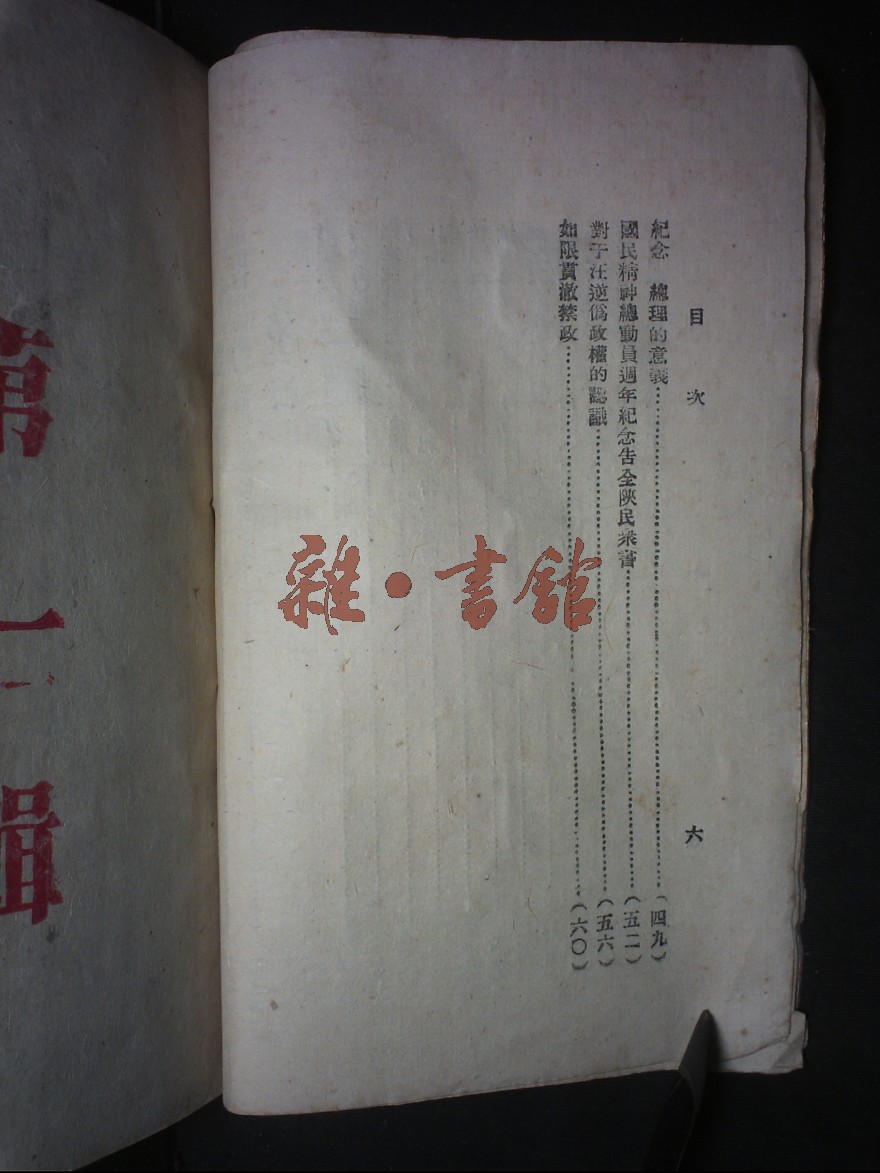 目次 六
紀念 總理的意義………(四九)
國民精神總動員週年紀念告全陝民衆書………(五二)
對于汪逆僞政權的認識………(五六)
如限貫澈禁政………(六〇)
第一輯
雜·書館